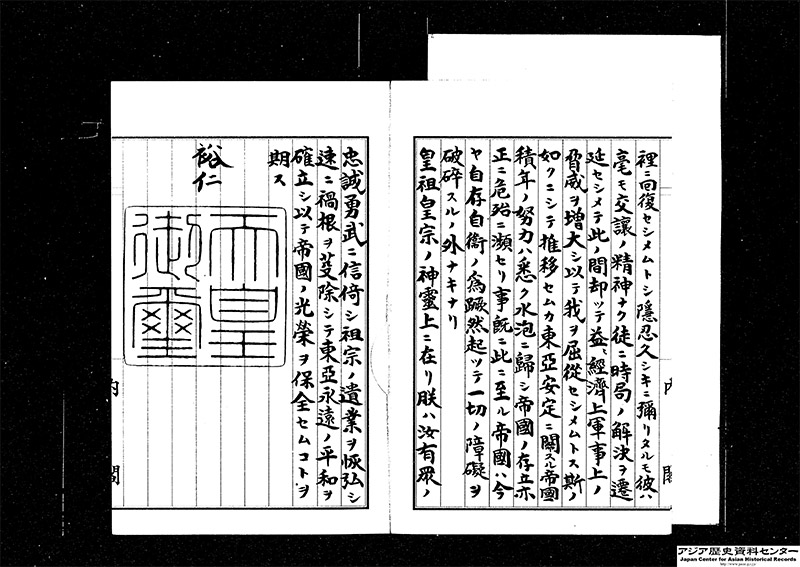 裡ニ回復セシメムトシ隱忍久シキニ彌リタルモ彼ハ
毫モ交讓ノ精神ナク徒ニ時局ノ解決ヲ遷
延セシメテ此ノ間却ツテ益〻經濟上軍事上ノ
脅威ヲ增大シ以テ我ヲ屈從セシメムトス斯ノ
如クニシテ推移セムカ東亞安定ニ關スル帝國
積年ノ努力ハ悉ク水泡ニ歸シ帝國ノ存立亦
正ニ危殆ニ瀕セリ事既ニ此ニ至ル帝國ハ今
ヤ自存自衞ノ爲蹶然起ツテ一切ノ障礙ヲ
破碎スルノ外ナキナリ
皇祖皇宗ノ神靈上ニ在リ朕ハ汝有眾ノ
忠誠勇武ニ信倚シ祖宗ノ遺業ヲ恢弘シ
速ニ禍根ヲ芟除シテ東亞永遠ノ平和ヲ
確立シ以テ帝國ノ光榮ヲ保全セムコトヲ
期ス
裕仁
天皇
御璽
内閣
アジア歴史資料センター
Japan Center for Asian Historical Records